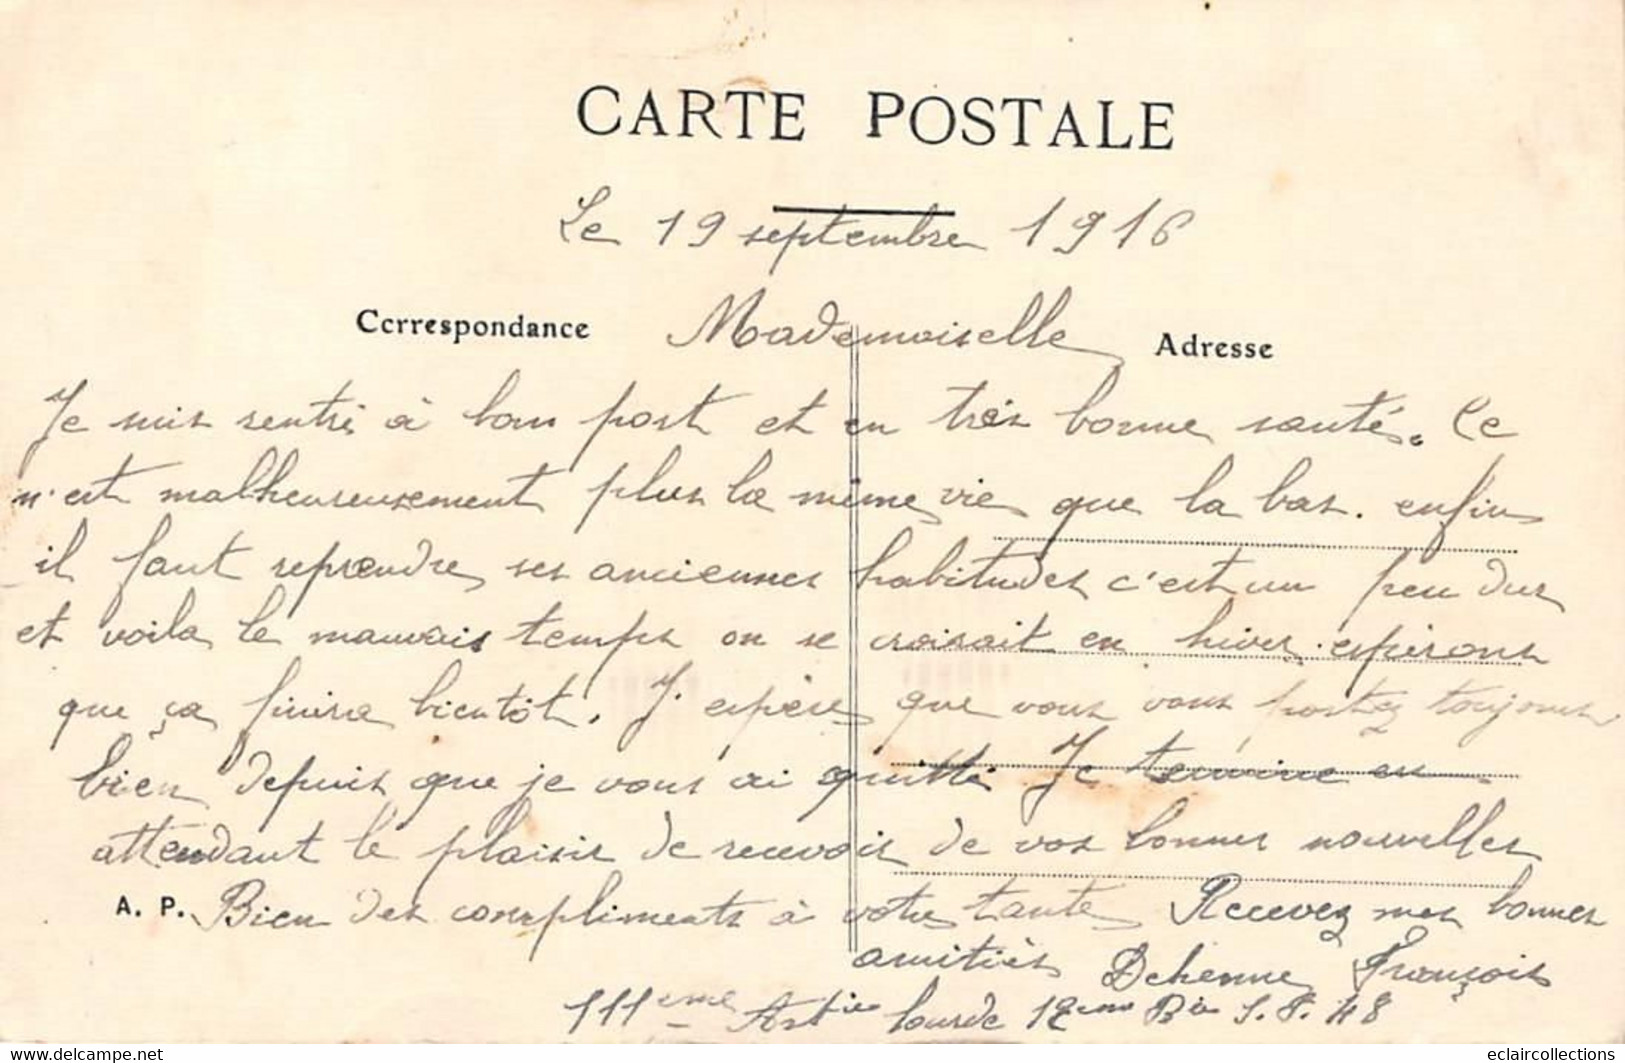 CARTE POSTALE
Le 19 septembre 1916
Correspondance
Mademoiselle
Adresse
Je suis rentré à bon port et en très bonne santé. Ce
n'est malheureusement plus la même vie que la bas. enfin
il faut reprendre ses anciennes habitudes c'est un peu dur
et voila le mauvais temps on se croirait en hiver. espérons
que ça finira bientôt. J'espère que vous vous portez toujours
bien depuis que je vous ai quitté. Je termine en
attendant le plaisir de recevoir de vos bonnes nouvelles
A. P. Bien des compliments à votre tante Recevez mes bonnes
amitiés Dehenne François
111eme Artie lourde 12eme Bie S. P. 48
eclaircollections